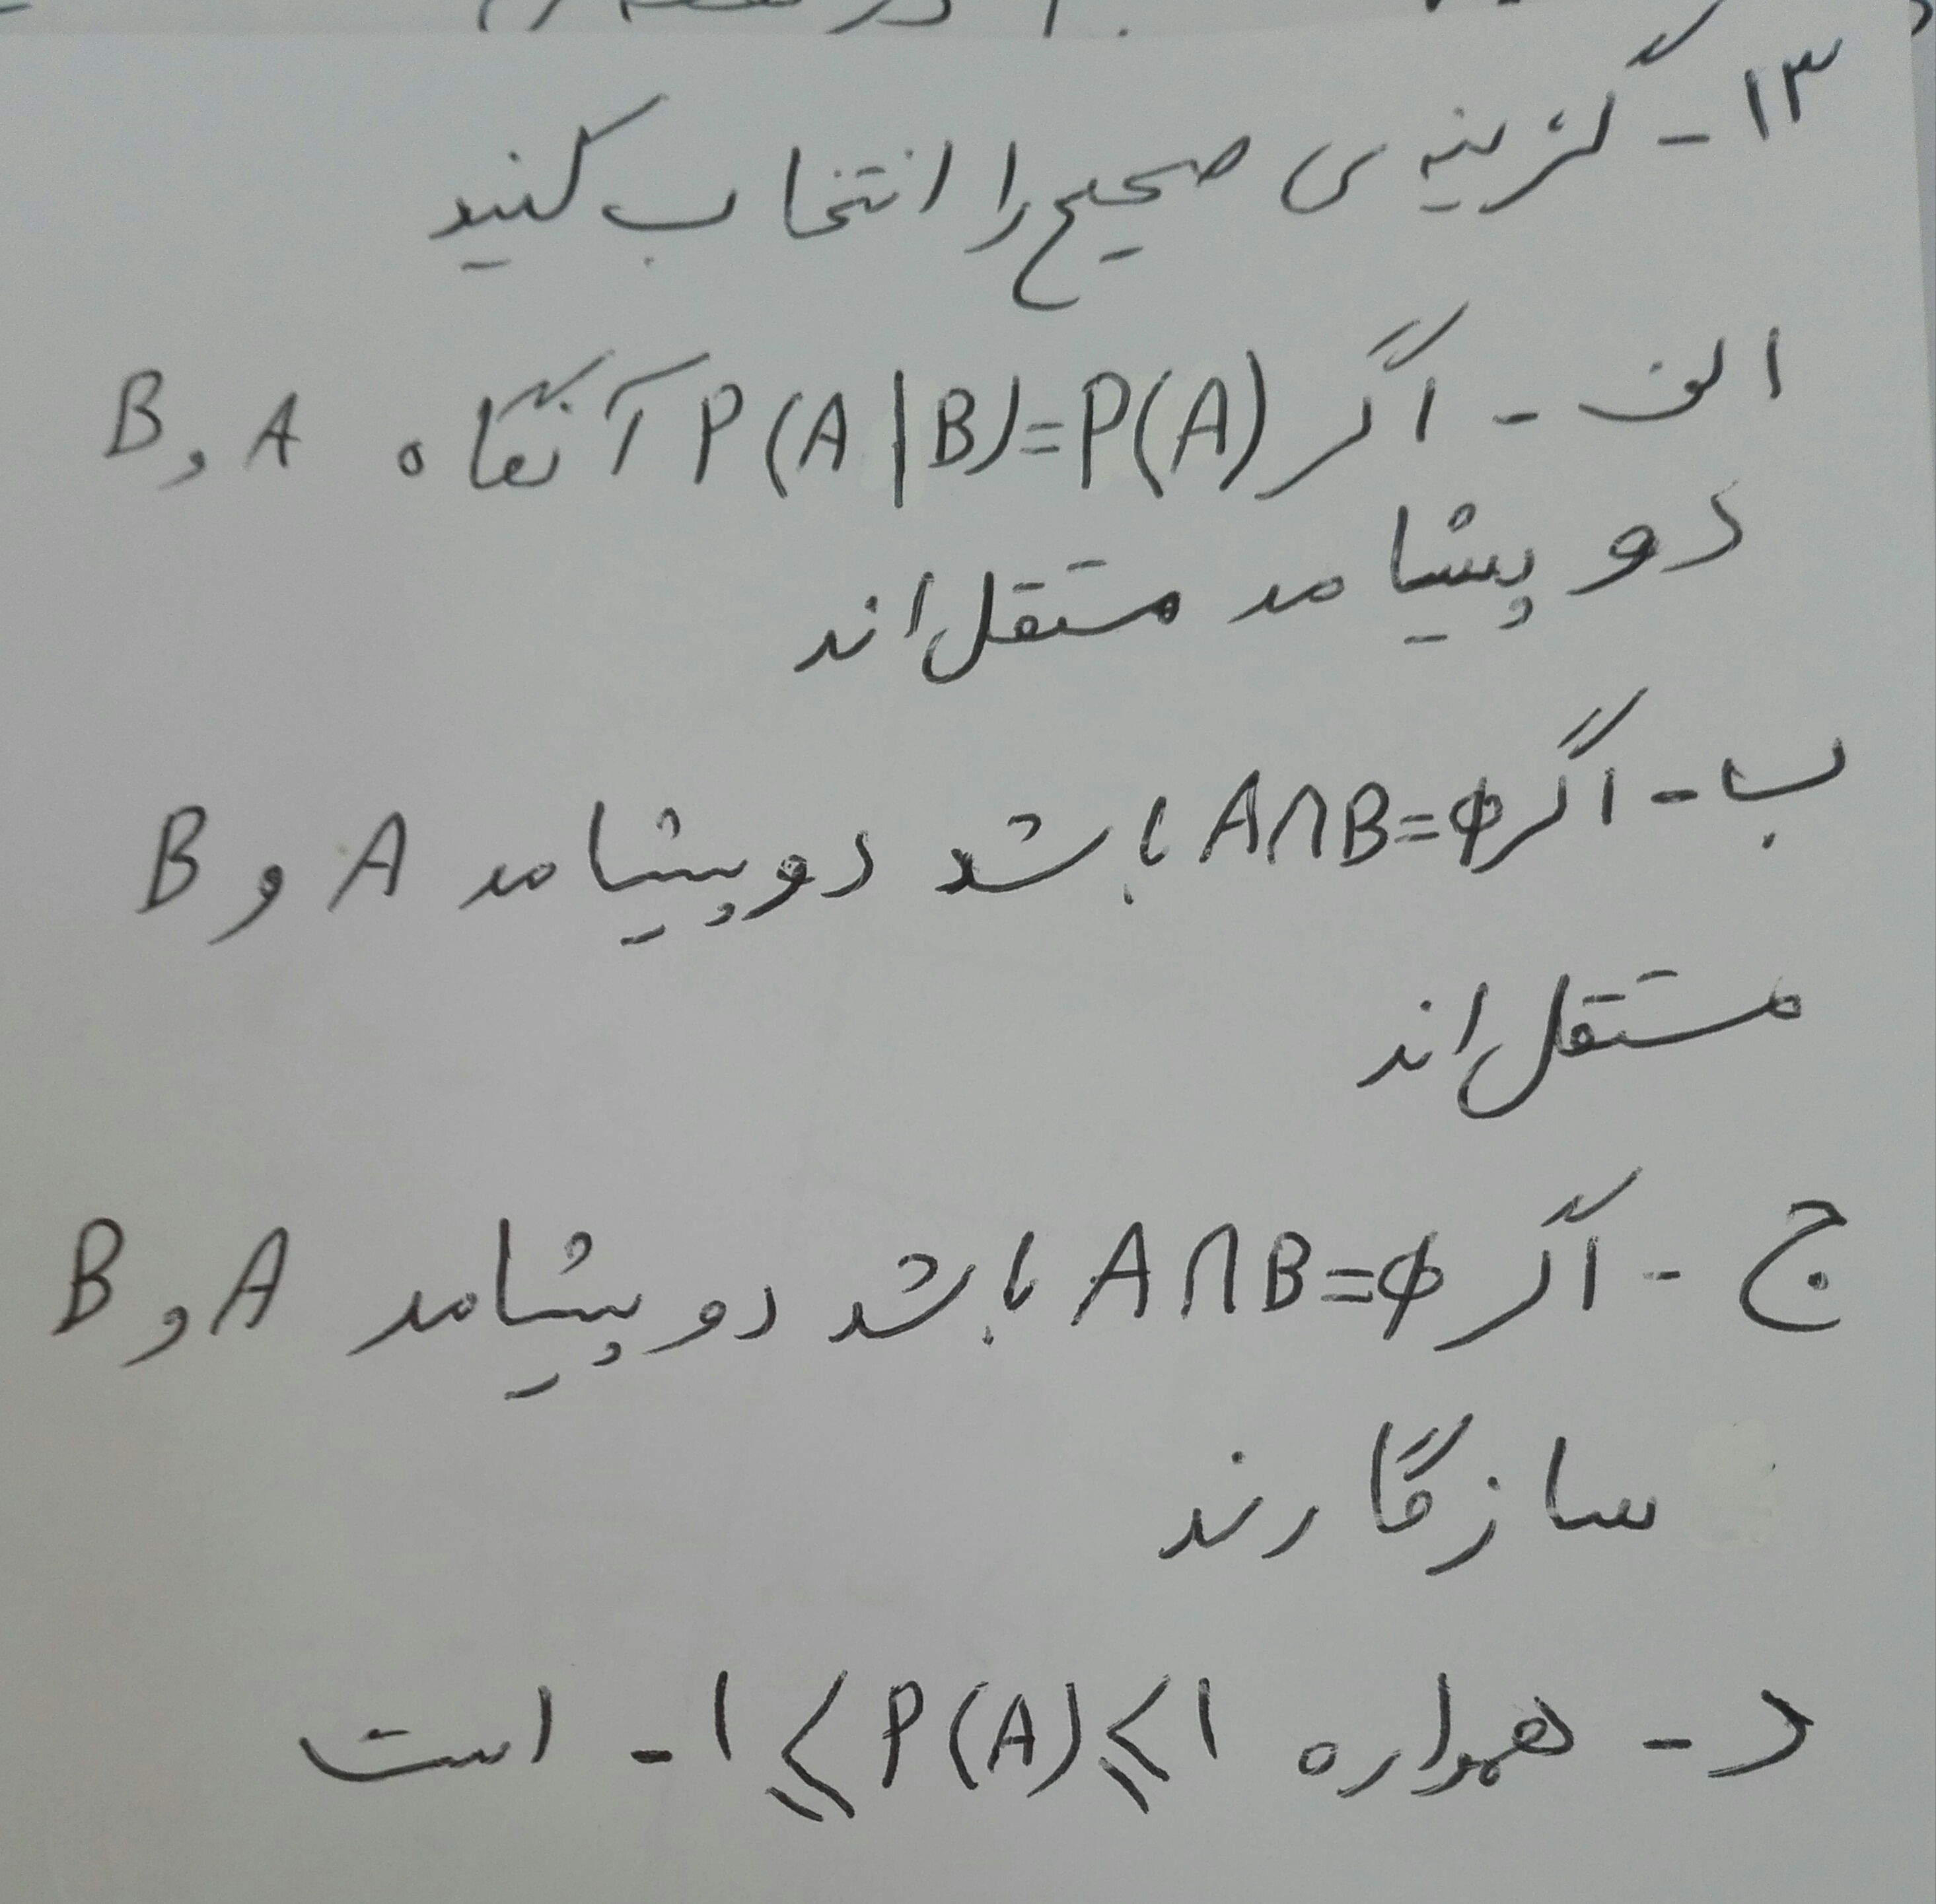 ۱۳ - گزینه ی صحیح را انتخاب کنید
الف - اگر P(A|B)=P(A) آنگاه A و B
دو پیشامد مستقل اند
ب - اگر A∩B=φ باشد دو پیشامد A و B
مستقل اند
ج - اگر A∩B=φ باشد دو پیشامد A و B
سازگارند
د - همواره -۱⩽P(A)⩽۱ است